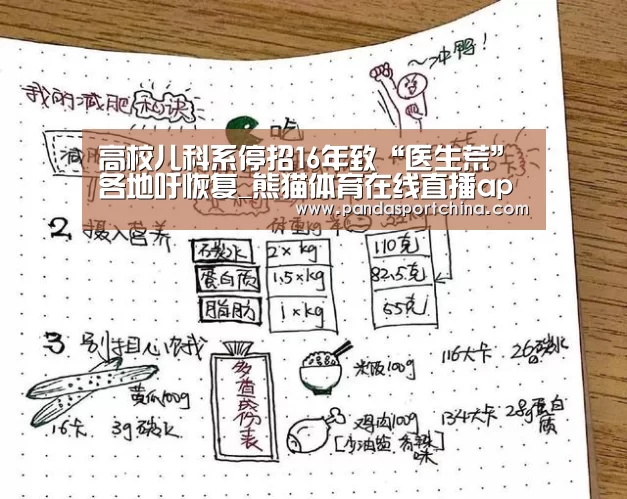 ～冲鸭!
我的减肥秘诀
吃
减肥
高校儿科系停招16年致“医生荒”
各地吁恢复_熊猫体育在线直播ap
www.pandasportchina.com
2. 摄入营养
体重kg
碳水 2×kg 110克
蛋白质 1.5×kg 82.5克
脂肪 1×kg 55克
3.
黄瓜100g
16卡 3g碳水
米饭100g 116大卡 26碳水
鸡肉100g 134大卡 28g蛋白质
[少油盐 香辣味